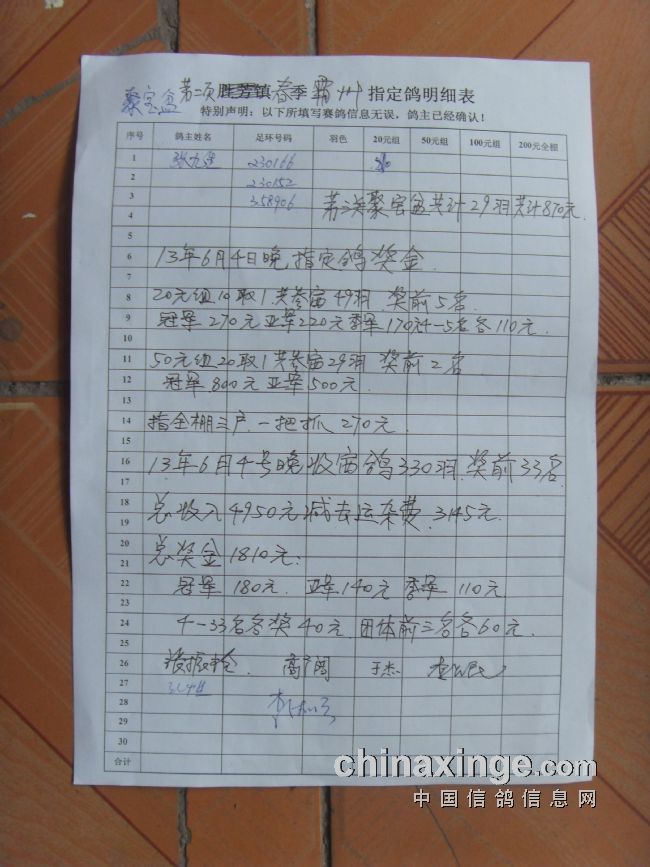 聚宝盆 第二项 胜芳镇 春季 霸州 指定鸽明细表
特别声明:以下所填写赛鸽信息无误,鸽主已经确认!
序号 鸽主姓名 足环号码 羽色 20元组 50元组 100元组 200元全棚
1 230166
2 230152
3 358906 聚宝盆共计29羽共计870元.
4
5
6 13年6月4日晚,指定鸽奖金.
7
8 20元组10取1共参宙49羽.奖前5名.
9 冠军270元亚军220元季军170元4-5名各110元.
10
11 50元组20取1共参宙29羽 奖前2名
12 冠军.800元亚军500元.
13
14 指全棚三户.一把抓270元.
15
16 13年6月4号晚收宙鸽330羽.奖前33名.
17
18 总收入4950元减去运杂费.3145元.
19
20 总奖金1810元:
21
22 冠军180元.亚军140元季军110元.
23
24 4-33名各奖40元.团体前三名各60元.
25
26 于杰
27
28
29
30
合计
chinaxinge.com
中国信鸽信息网